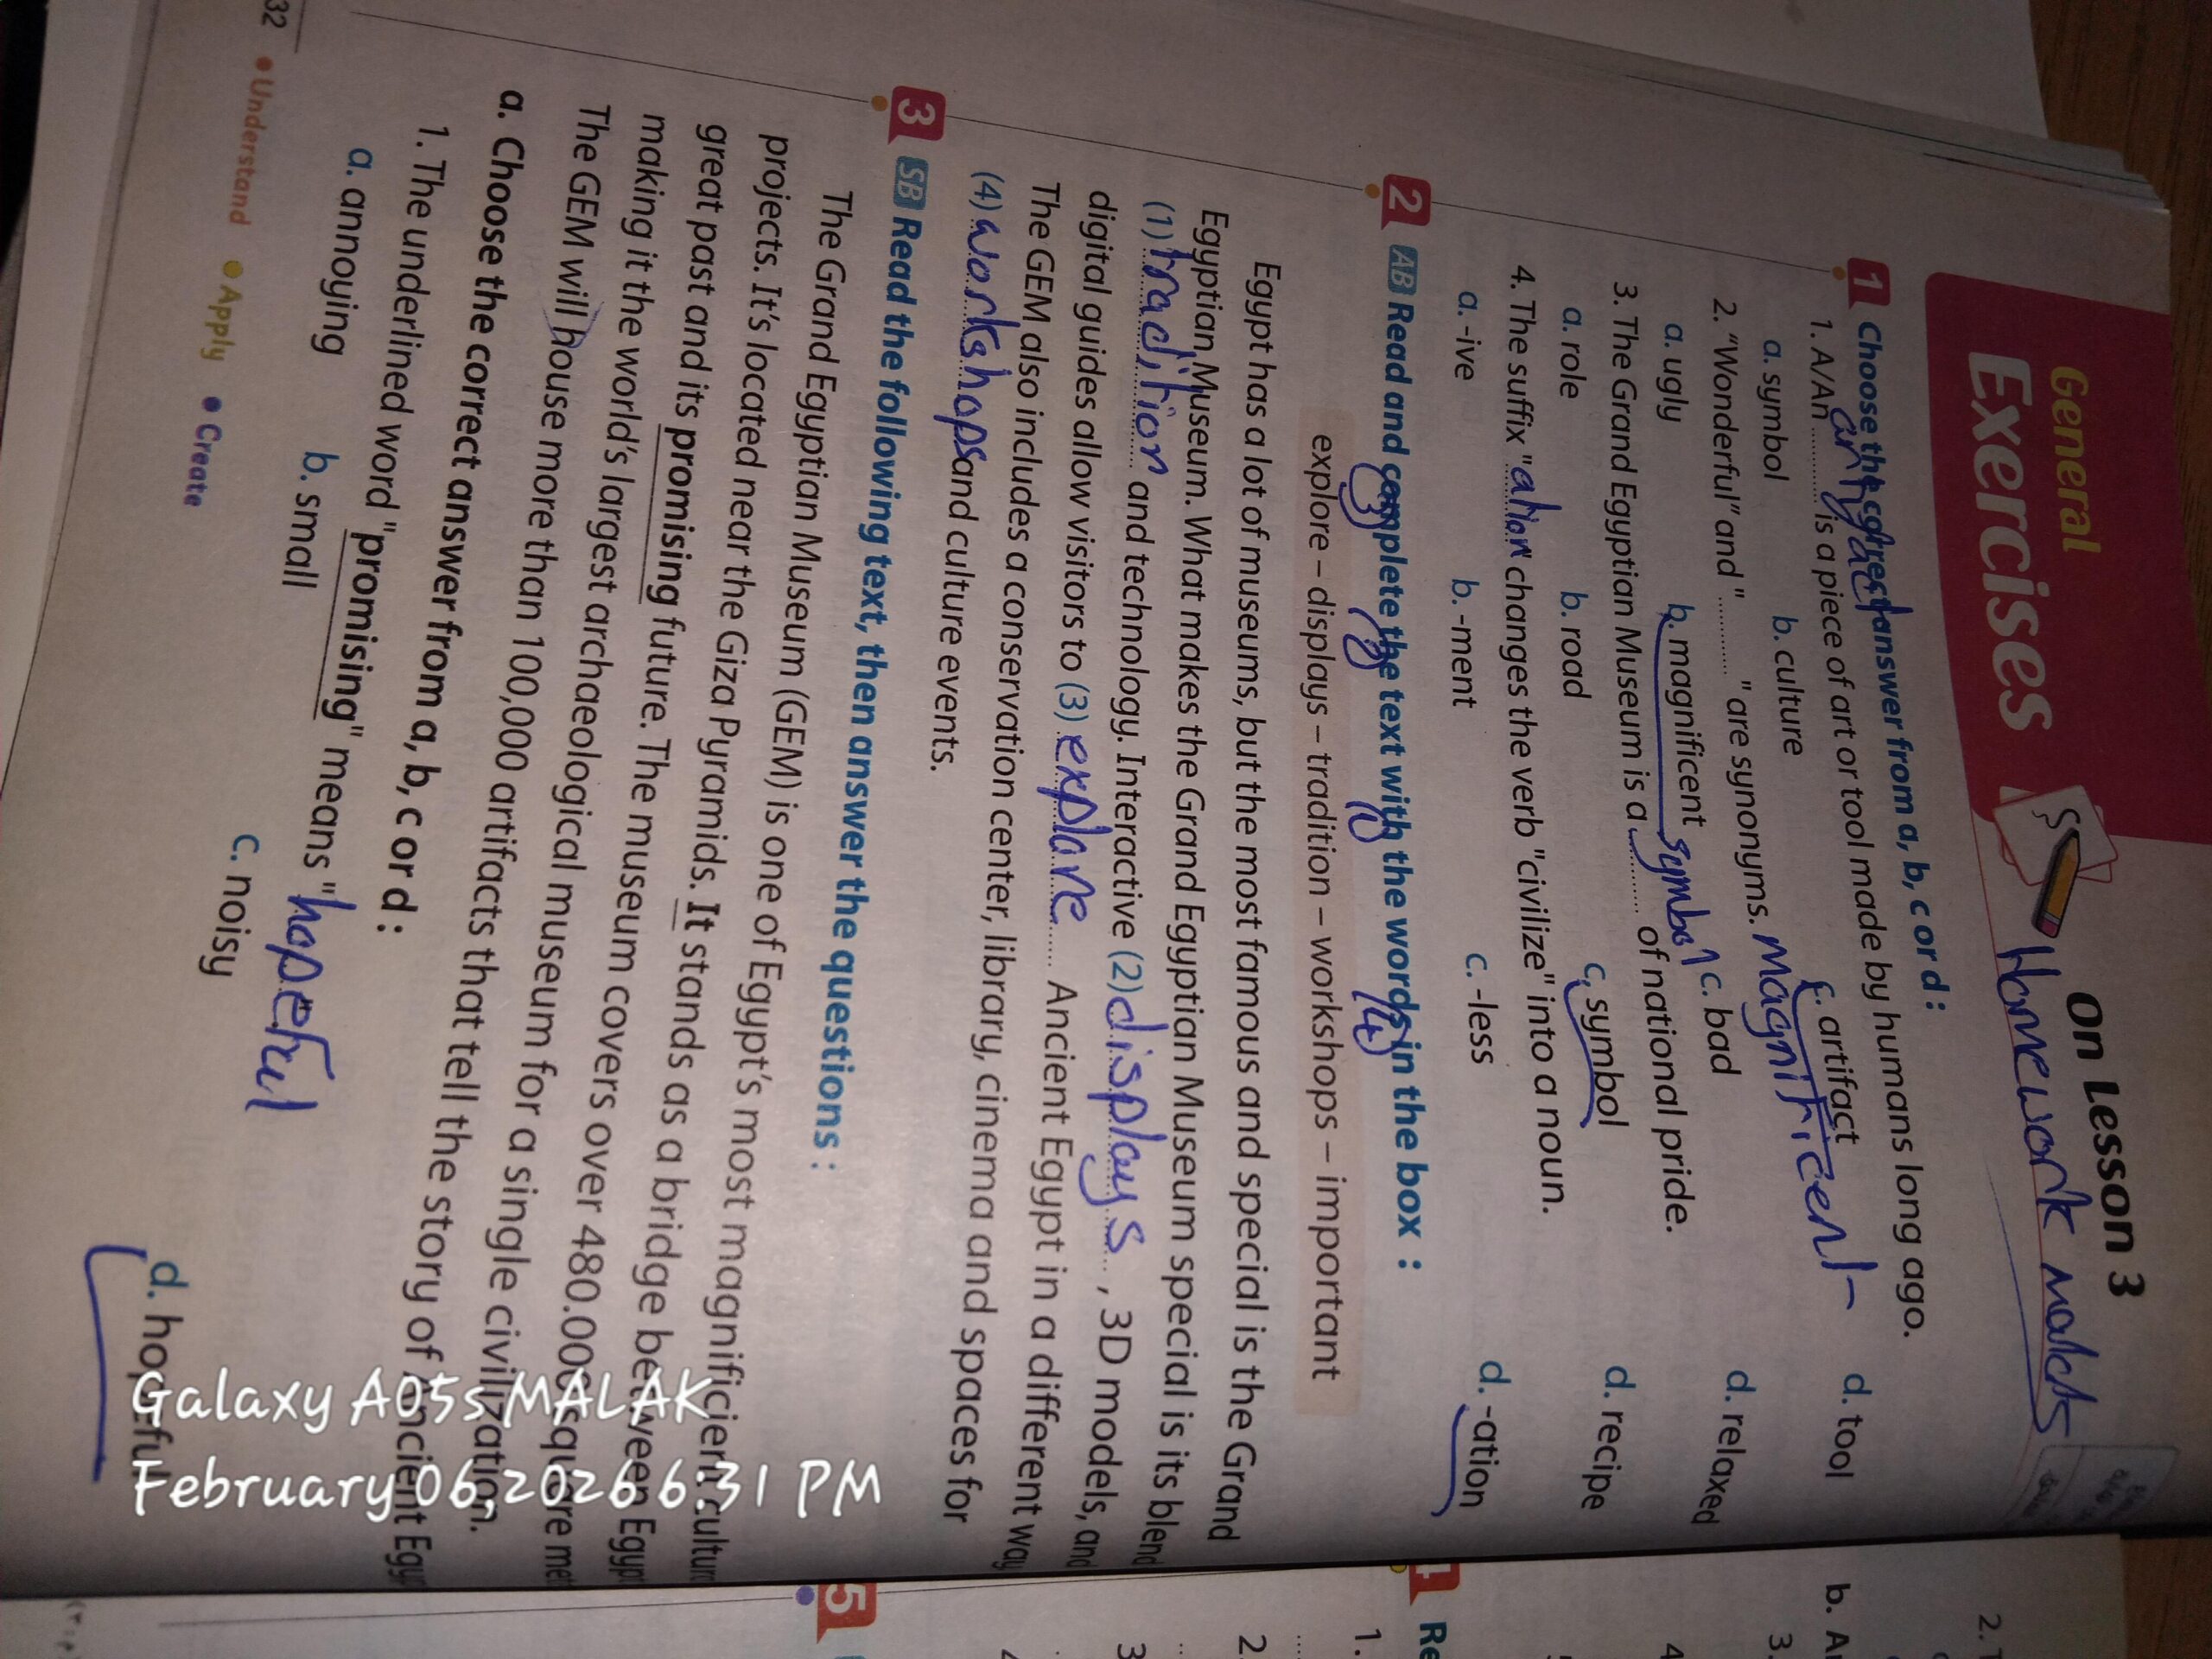 General
Exercises
On Lesson 3
Homework
1 Choose the correct answer from a, b, c or d :
1. A/An ........ is a piece of art or tool made by humans long ago.
a. symbol b. culture c. artifact d. tool
2. "Wonderful" and " ........ " are synonyms. magnificent
a. ugly b. magnificent c. bad d. relaxed
3. The Grand Egyptian Museum is a symbol of national pride.
a. role b. road c. symbol d. recipe
4. The suffix "ation" changes the verb "civilize" into a noun.
a. -ive b. -ment c. -less d. -ation
2 AB Read and complete the text with the words in the box :
(3) (2) (1) (4)
explore – displays – tradition – workshops – important
Egypt has a lot of museums, but the most famous and special is the Grand
Egyptian Museum. What makes the Grand Egyptian Museum special is its blend
(1) tradition and technology. Interactive (2) displays , 3D models, and
digital guides allow visitors to (3) explore Ancient Egypt in a different way
The GEM also includes a conservation center, library, cinema and spaces for
(4) workshops and culture events.
3 SB Read the following text, then answer the questions :
The Grand Egyptian Museum (GEM) is one of Egypt's most magnificient cultur
projects. It's located near the Giza Pyramids. It stands as a bridge between Egypt
great past and its promising future. The museum covers over 480.000 square met
making it the world's largest archaeological museum for a single civilization.
The GEM will house more than 100,000 artifacts that tell the story of Ancient Egy
a. Choose the correct answer from a, b, c or d :
1. The underlined word "promising" means "hopeful
a. annoying b. small c. noisy d. hopeful
32 Understand Apply Create
Galaxy A05s MALAK
February 06, 2026 6:31 PM
5
1.
2
3
b.
2.
3.
4
Re